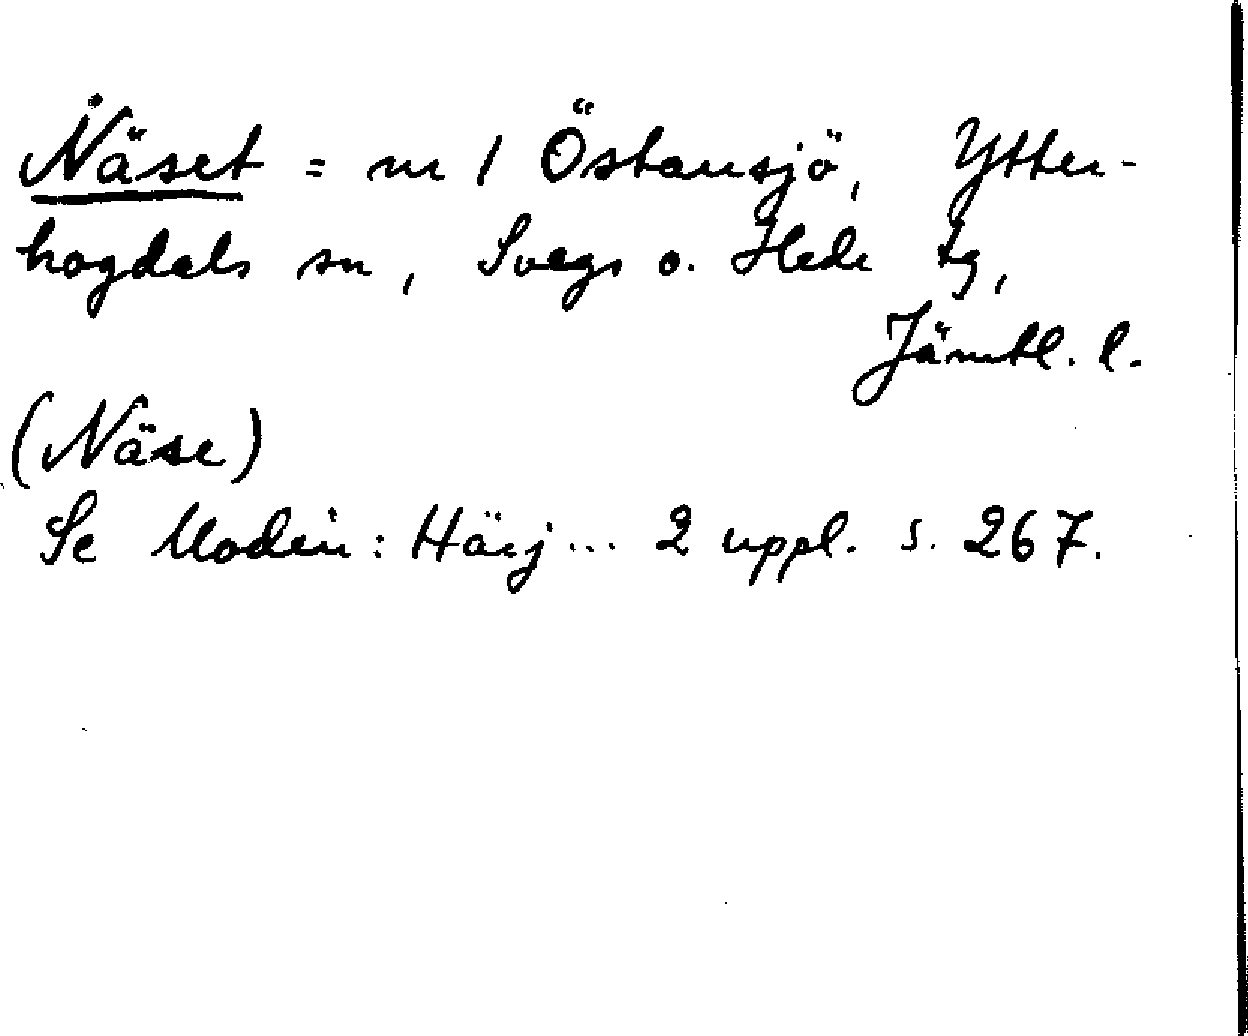 Näset = nr 1 Östansjö, Ytter-
hogdals sn, Svegs o. Hede tg,
Jämtl. l.
(Näse)
Se Modin: Härj... 2 uppl. s. 267.